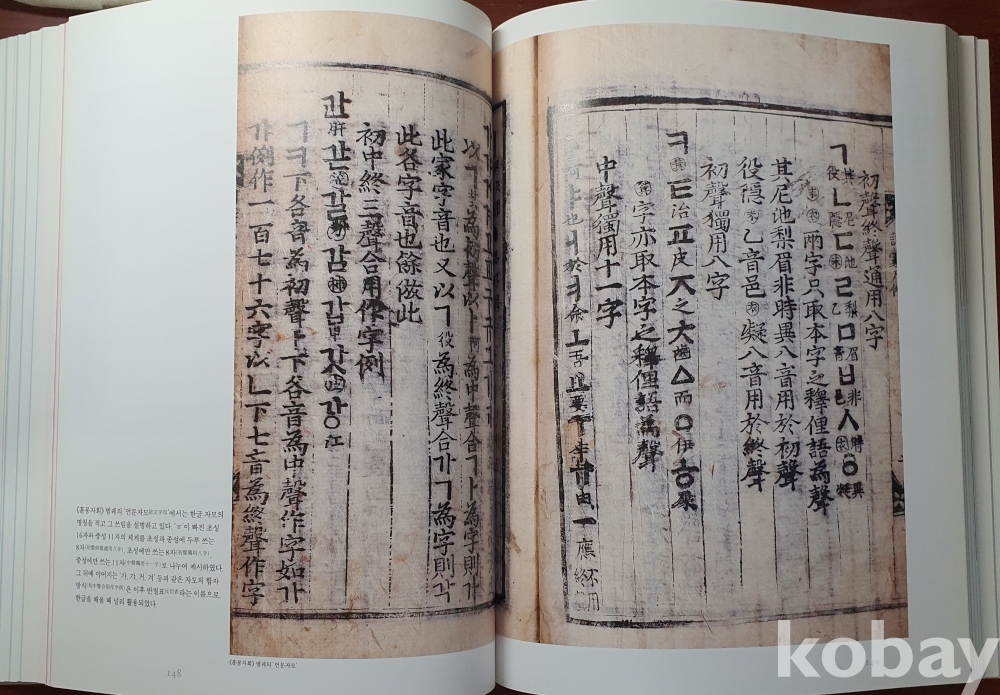 初聲終聲通用八字
ㄱ其役ㄴ尼隱ㄷ池末ㄹ梨乙ㅁ眉音ㅂ非邑ㅅ時衣ㆁ異凝
末衣兩字只取本字之釋俚語爲聲
其尼池梨眉非時異八音用於初聲
役隱末乙音邑衣凝八音用於終聲
初聲獨用八字
ㅋ箕ㅌ治ㅍ皮ㅈ之ㅊ齒ㅿ而ㅇ伊ㅎ屎
箕字亦取本字之釋俚語爲聲
中聲獨用十一字
阿ㅑ也ㅓ於ㅕ余ㅗ吾ㅛ要ㅜ牛ㅠ由ㅡ應不用終聲
以ㄱ其爲初聲以ㅏ阿爲中聲合ㄱㅏ爲字則가
此家字音也又以ㄱ役爲終聲合가ㄱ爲字則각
此各字音也餘倣此
初中終三聲合用作字例
간肝갇笠갈刀감柿갑甲갓皮강江
ㄱㅋ下各音爲初聲ㅏ下各音爲中聲作字如가
갸例作一百七十六字以ㄴ下七音爲終聲作字
《훈몽자회》 범례의 '언문자모諺文字母'에서는 한글 자모의
명칭을 적고 그 쓰임을 설명하고 있다. 'ㆆ'이 빠진 초성
16자와 중성 11자의 체계를 초성과 종성에 두루 쓰는
8자(初聲終聲通用八字), 초성에만 쓰는 8자(初聲獨用八字),
중성에만 쓰는 11자(中聲獨用十一字)로 나누어 제시하였다.
그 뒤에 이어지는 '가, 갸, 거, 겨' 등과 같은 자모의 합자
방식(初中聲合用作字例)은 이후 반절표反切表라는 이름으로
한글을 배울 때 널리 활용되었다.
《훈몽자회》 범례의 '언문자모'
148
149
kobay